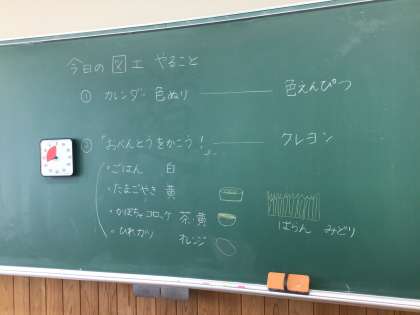 今日の 図工 やること
① カレンダー 色ぬり ―― 色えんぴつ
② 「おべんとうをかこう!」 ―― クレヨン
・ごはん 白
・たまごやき 黄
・かぼちゃコロッケ 茶・黄
・ひれカツ オレンジ
ばらん みどり